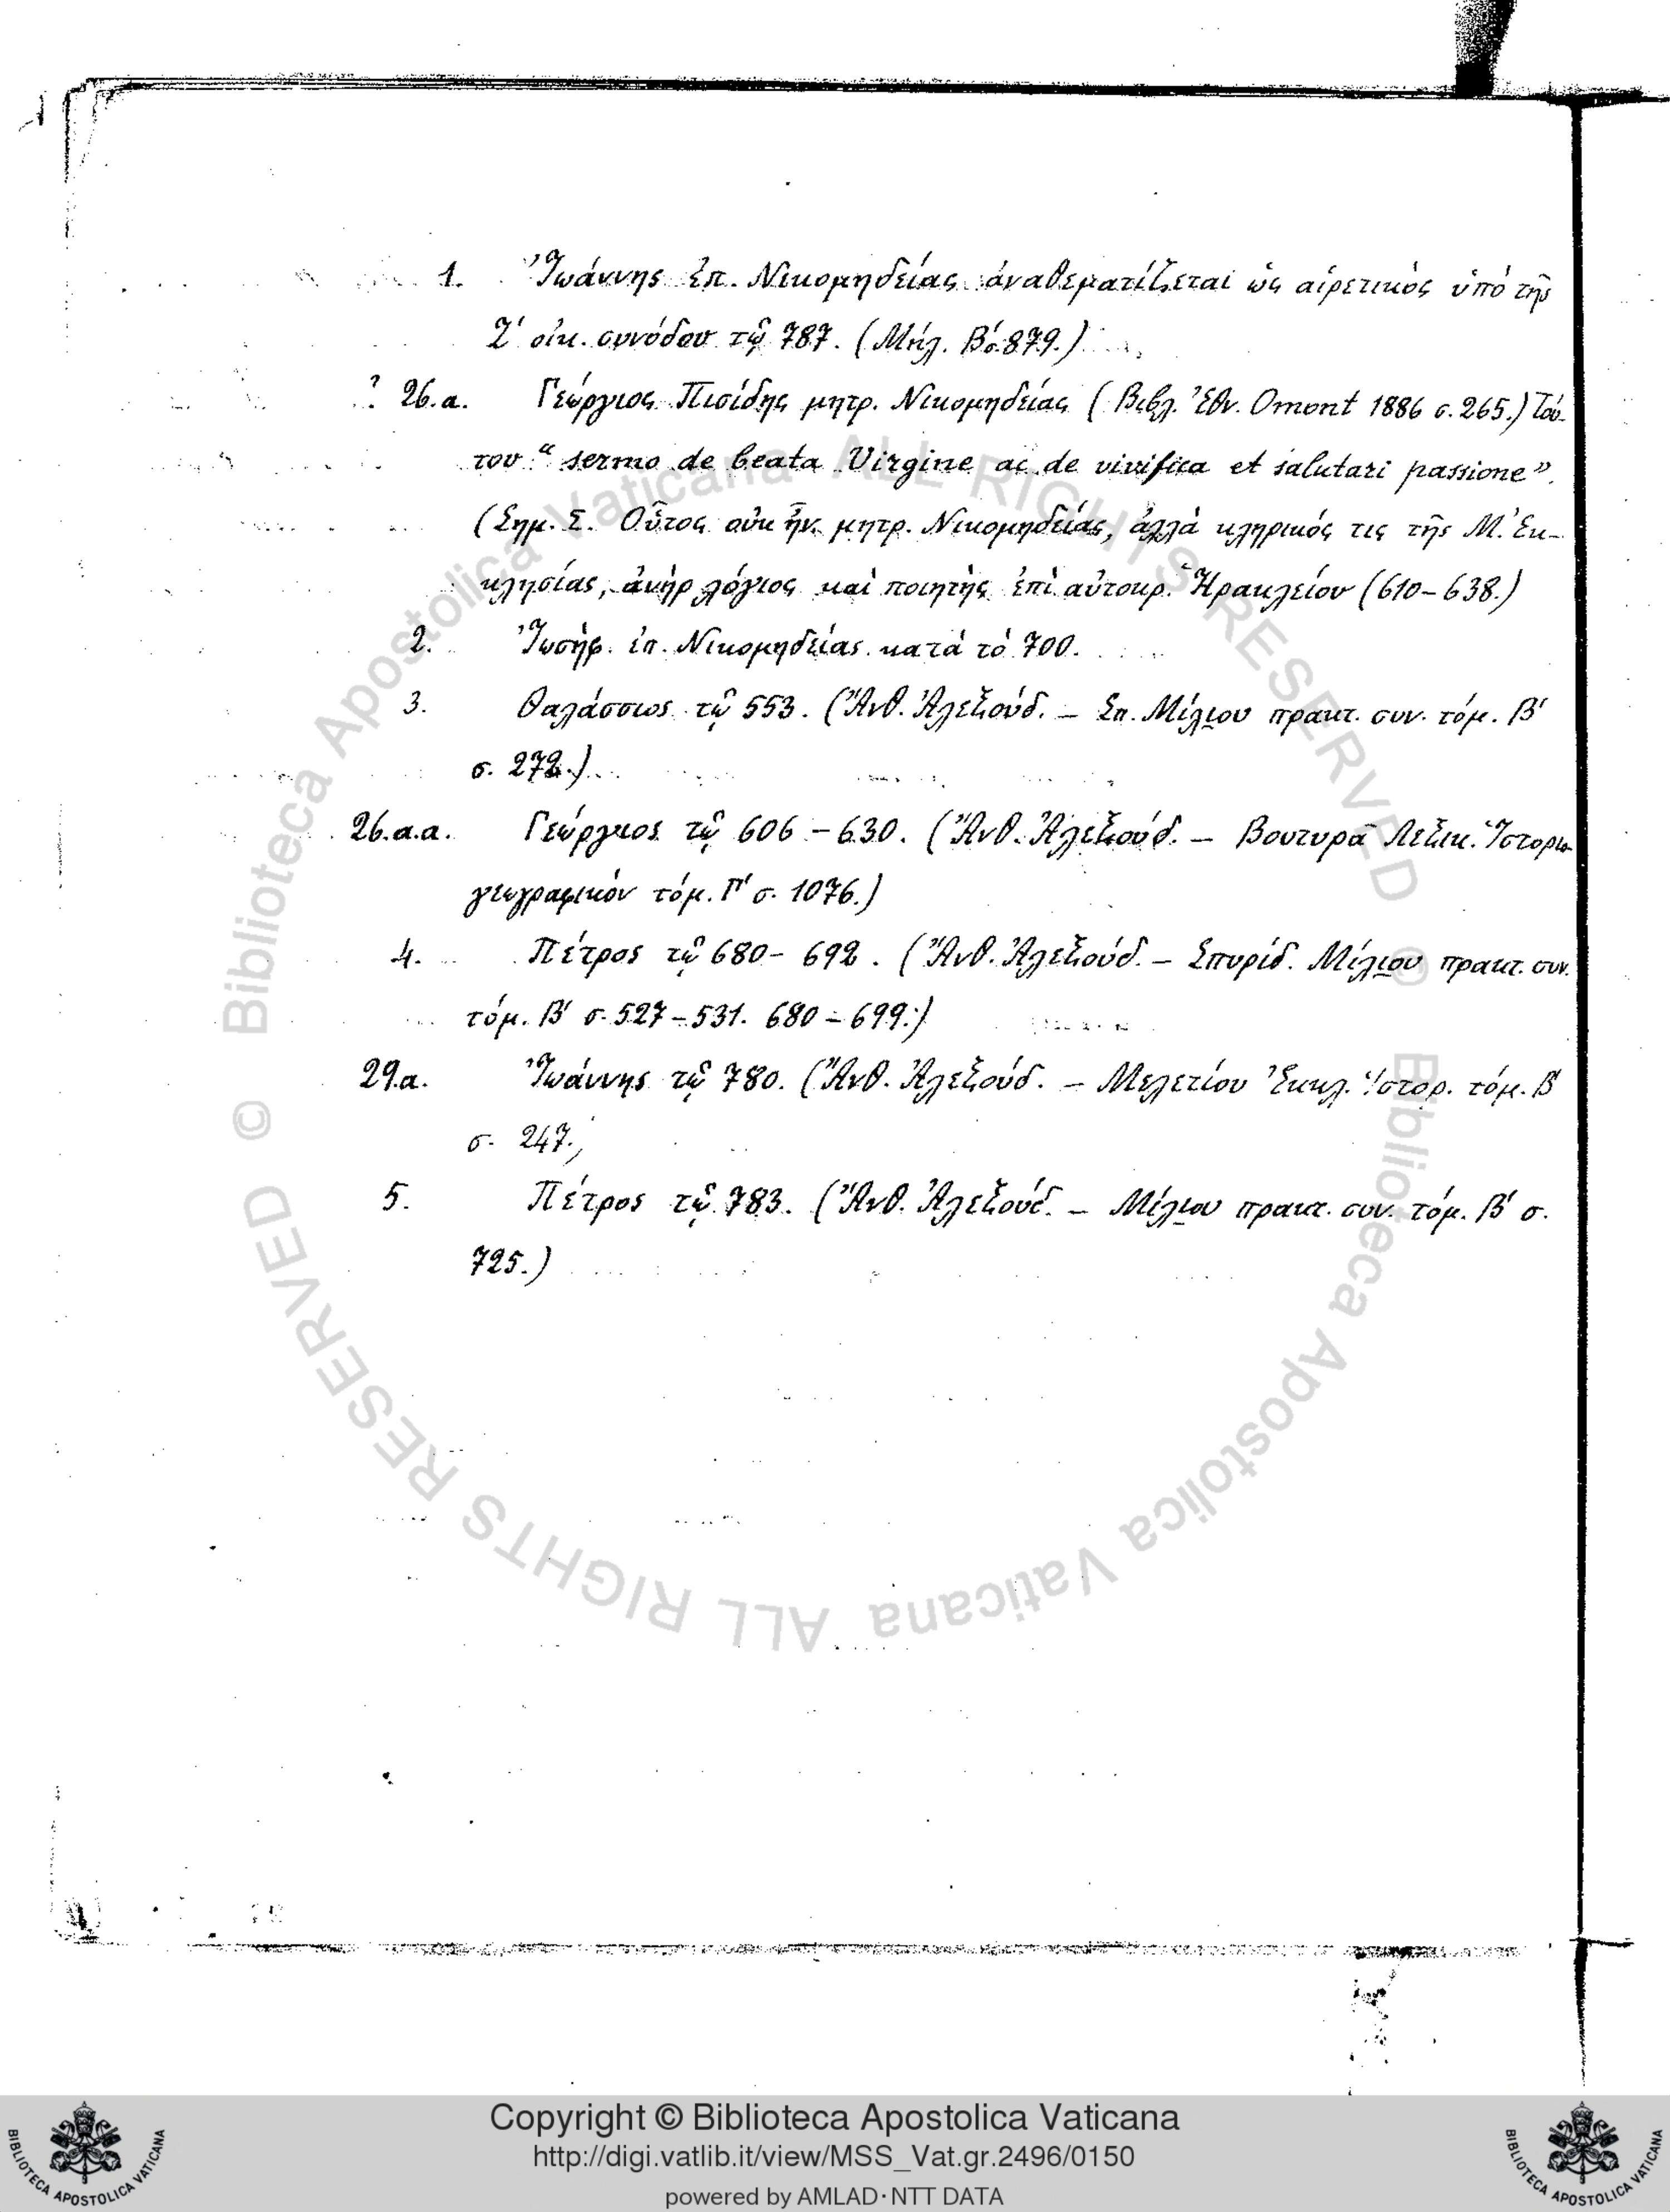 1. Ἰωάννης ἐπ. Νικομηδείας ἀναθεματίζεται ὡς αἱρετικὸς ὑπὸ τῆς
Ζ' οἰκ. συνόδου τῷ 787. (Μήλ. Β' σ. 879.)
? 26.α. Γεώργιος Πισίδης μητρ. Νικομηδείας (Βιβλ. Ἐθν. Omont 1886 σ. 265.) Τού-
του “sermo de beata Virgine ac de vivifica et salutari passione”.
(Σημ. Σ. Οὗτος οὐκ ἦν μητρ. Νικομηδείας, ἀλλὰ κληρικός τις τῆς Μ. Ἐκ-
κλησίας, ἀνὴρ λόγιος καὶ ποιητὴς ἐπὶ αὐτοκρ. Ἡρακλείου (610-638.)
2. Ἰωσὴφ ἐπ. Νικομηδείας κατὰ τὸ 700.
3. Θαλάσσιος τῷ 553. (Ἄνθ. Ἀλεξούδ. – Σπ. Μίλιου πρακτ. συν. τόμ. Β'
σ. 272.)
26.α.α. Γεώργιος τῷ 606-630. (Ἄνθ. Ἀλεξούδ. – Βουτυρᾶ Λεξικ. Ἱστοριο
γεωγραφικόν τόμ. Γ' σ. 1076.)
4. Πέτρος τῷ 680-692. (Ἄνθ. Ἀλεξούδ. – Σπυρίδ. Μίλιου πρακτ. συν.
τόμ. Β' σ. 527-531. 680-699.)
29.α. Ἰωάννης τῷ 780. (Ἄνθ. Ἀλεξούδ. – Μελετίου Ἐκκλ. Ἱστορ. τόμ. Β'
σ. 247.)
5. Πέτρος τῷ 783. (Ἄνθ. Ἀλεξούδ. – Μίλιου πρακτ. συν. τόμ. Β' σ.
725.)
© Biblioteca Apostolica Vaticana ALL RIGHTS RESERVED © Biblioteca Apostolica Vaticana ALL RIGHTS RESERVED
Copyright © Biblioteca Apostolica Vaticana
http://digi.vatlib.it/view/MSS_Vat.gr.2496/0150
powered by AMLAD·NTT DATA
BIBLIOTECA APOSTOLICA VATICANA
BIBLIOTECA APOSTOLICA VATICANA